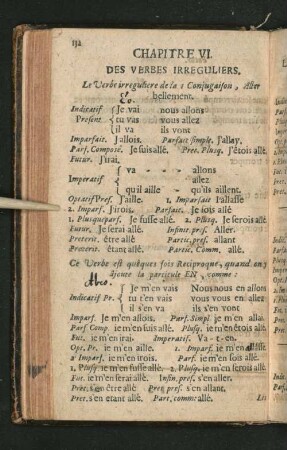 132
CHAPITRE VI.
DES VERBES IRREGULIERS.
Le Verbe irregulier de la 1 Conjugaison, Aller
bellement.
Eo.
Indicatif { Je vai nous allons
Present { tu vas vous allez
{ il va ils vont
Imparfait. J'allois. Parfait simple. J'allay.
Parf. Composé. Je suis allé. Pres. Plusq. J'étois allé.
Futur. J'irai.
{ va - - allons
Imperatif { allez
{ qu'il aille - qu'ils aillent.
Optatif Pres. J'aille. 1. Imparfait J'allasse
2. Imparf. J'irois. Parfait. Je sois allé
1. Plusqueparf. Je fusse allé. 2. Plusq. Je serois allé
Futur. Je serai allé. Infinit. pres. Aller.
Preterit. être allé Partic. pres. allant
Preterit. étant allé. Partic. Comm. allé.
Ce Verbe est quelques fois Reciproque, quand on y
ajoute la particule EN, comme:
Abeo.
{ Je m'en vais Nous nous en allons
Indicatif Pr. { tu t'en vais vous vous en allez
{ il s'en va ils s'en vont
Imparf. Je m'en allois. Parf. Simpl. je m'en allai
Parf Comp. je m'en suis allé. Plusq. je m'en étois allé
Fut. je m'en irai. Imperatif. Va-t-en.
Opt. Pr. je m'en aille. 1. Imparf. je m'en allasse
2 Imparf. je m'en irois. Parf. je m'en sois allé.
1. Plusq. je m'en fusse allé. 2. Plusq. je m'en serois allé
Fut. je m'en serai allé. Infin. pres. s'en aller.
Pret. s'en être allé Part. pres. s'en allant
Pret. s'en étant allé. Part. comm. allé.